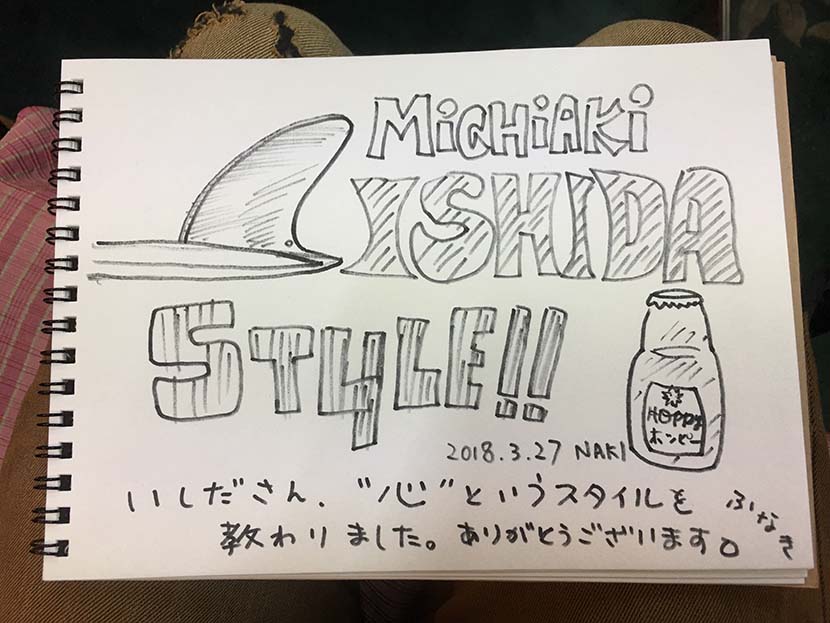 MiCHiAKi
ISHIDA
STyLE!!
HOPPy
ホッピー
2018.3.27 NAKI
いしださん、"心"というスタイルを
教わりました。ありがとうございます。
ふなき